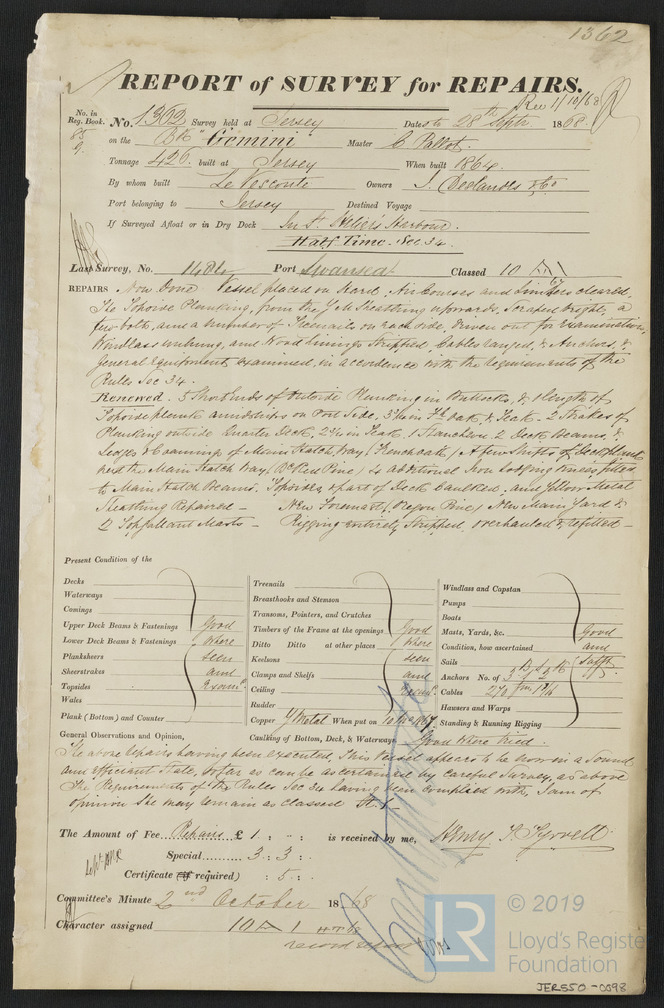 1362
REPORT of SURVEY for REPAIRS.
Rec 1/10/68
No. in Reg. Book. No. 1362 Survey held at Jersey Date 28th Septr 1868.
85 on the "Bk" Gemini Master C. Pallot.
Tonnage 426 built at Jersey When built 1864.
By whom built Le Vesconte Owners J. Deslandes & Co
Port belonging to Jersey Destined Voyage
If Surveyed Afloat or in Dry Dock In St. Helier's Harbour.
Half Time. Sec 34.
Last Survey, No. Port Swansea Classed 10 A 1
67
REPAIRS Now Done Vessel placed on Hard, Air Courses and Limbers cleared.
The Topside Planking, from the Y M Sheathing upwards, Scraped bright, a
few bolts, and a number of Treenails on each side, driven out for examination,
Windlass unhung, and Wood linings Stripped, Cables ranged, & Anchors, &
General Equipment examined, in accordance with the requirements of the
Rules Sec 34.
Renewed. 5 Short ends of Outside Planking in Buttocks, & 1 length of
Topside plank amidships on Port Side, 3½ in Fh Oak, & Teak - 2 Strakes of
Planking outside Quarter Deck, 2½ in Teak, 1 Stanchion 2 Deck Beams &
Ledges & Coamings of Main Hatch Way (French oak) A few Shifts of Deck plank
near the Main Hatch Way, (Red Pine) additional Iron Lodging knees fitted
to Main Hatch Beams. Topsides, & part of Deck Caulked, and Yellow Metal
Sheathing Repaired - New Foremast, (Oregon Pine) New Main Yard &
2 Topgallant Masts - Rigging entirely Stripped, overhauled & refitted -
Present Condition of the
Decks
Waterways
Comings
Upper Deck Beams & Fastenings Good
Lower Deck Beams & Fastenings where
Planksheers seen
Sheerstrakes and
Topsides examd
Wales
Plank (Bottom) and Counter
Treenails
Breasthooks and Stemson
Transoms, Pointers, and Crutches
Timbers of the Frame at the openings Good
Ditto Ditto at other places where
Keelsons seen
Clamps and Shelfs and
Ceiling examd
Rudder
Copper Y Metal When put on 1867
Caulking of Bottom, Deck, & Waterways Good where tried.
Windlass and Capstan
Pumps
Boats
Masts, Yards, &c. Good
Condition, how ascertained and
Sails Sufft
Anchors No. of 3 B 1 S 2 K
Cables 270 fm 1 7/16
Hawsers and Warps
Standing & Running Rigging
General Observations and Opinion,
The above repairs having been executed, This Vessel appears to be now in a Sound
and efficient State, so far as can be ascertained by careful Survey, as above
The Requirements of the Rules Sec 34 having been complied with, I am of
opinion She may remain as classed
The Amount of Fee Repairs £ 1 : " : is received by me, Henry T. Tyrrell
Special 3 : 3 :
Certificate (if required) : 5 :
Committee's Minute 2nd October 1868
Character assigned 10 A 1 H.T 68
© 2019
LR Lloyd's Register
Foundation
JERS50-0098